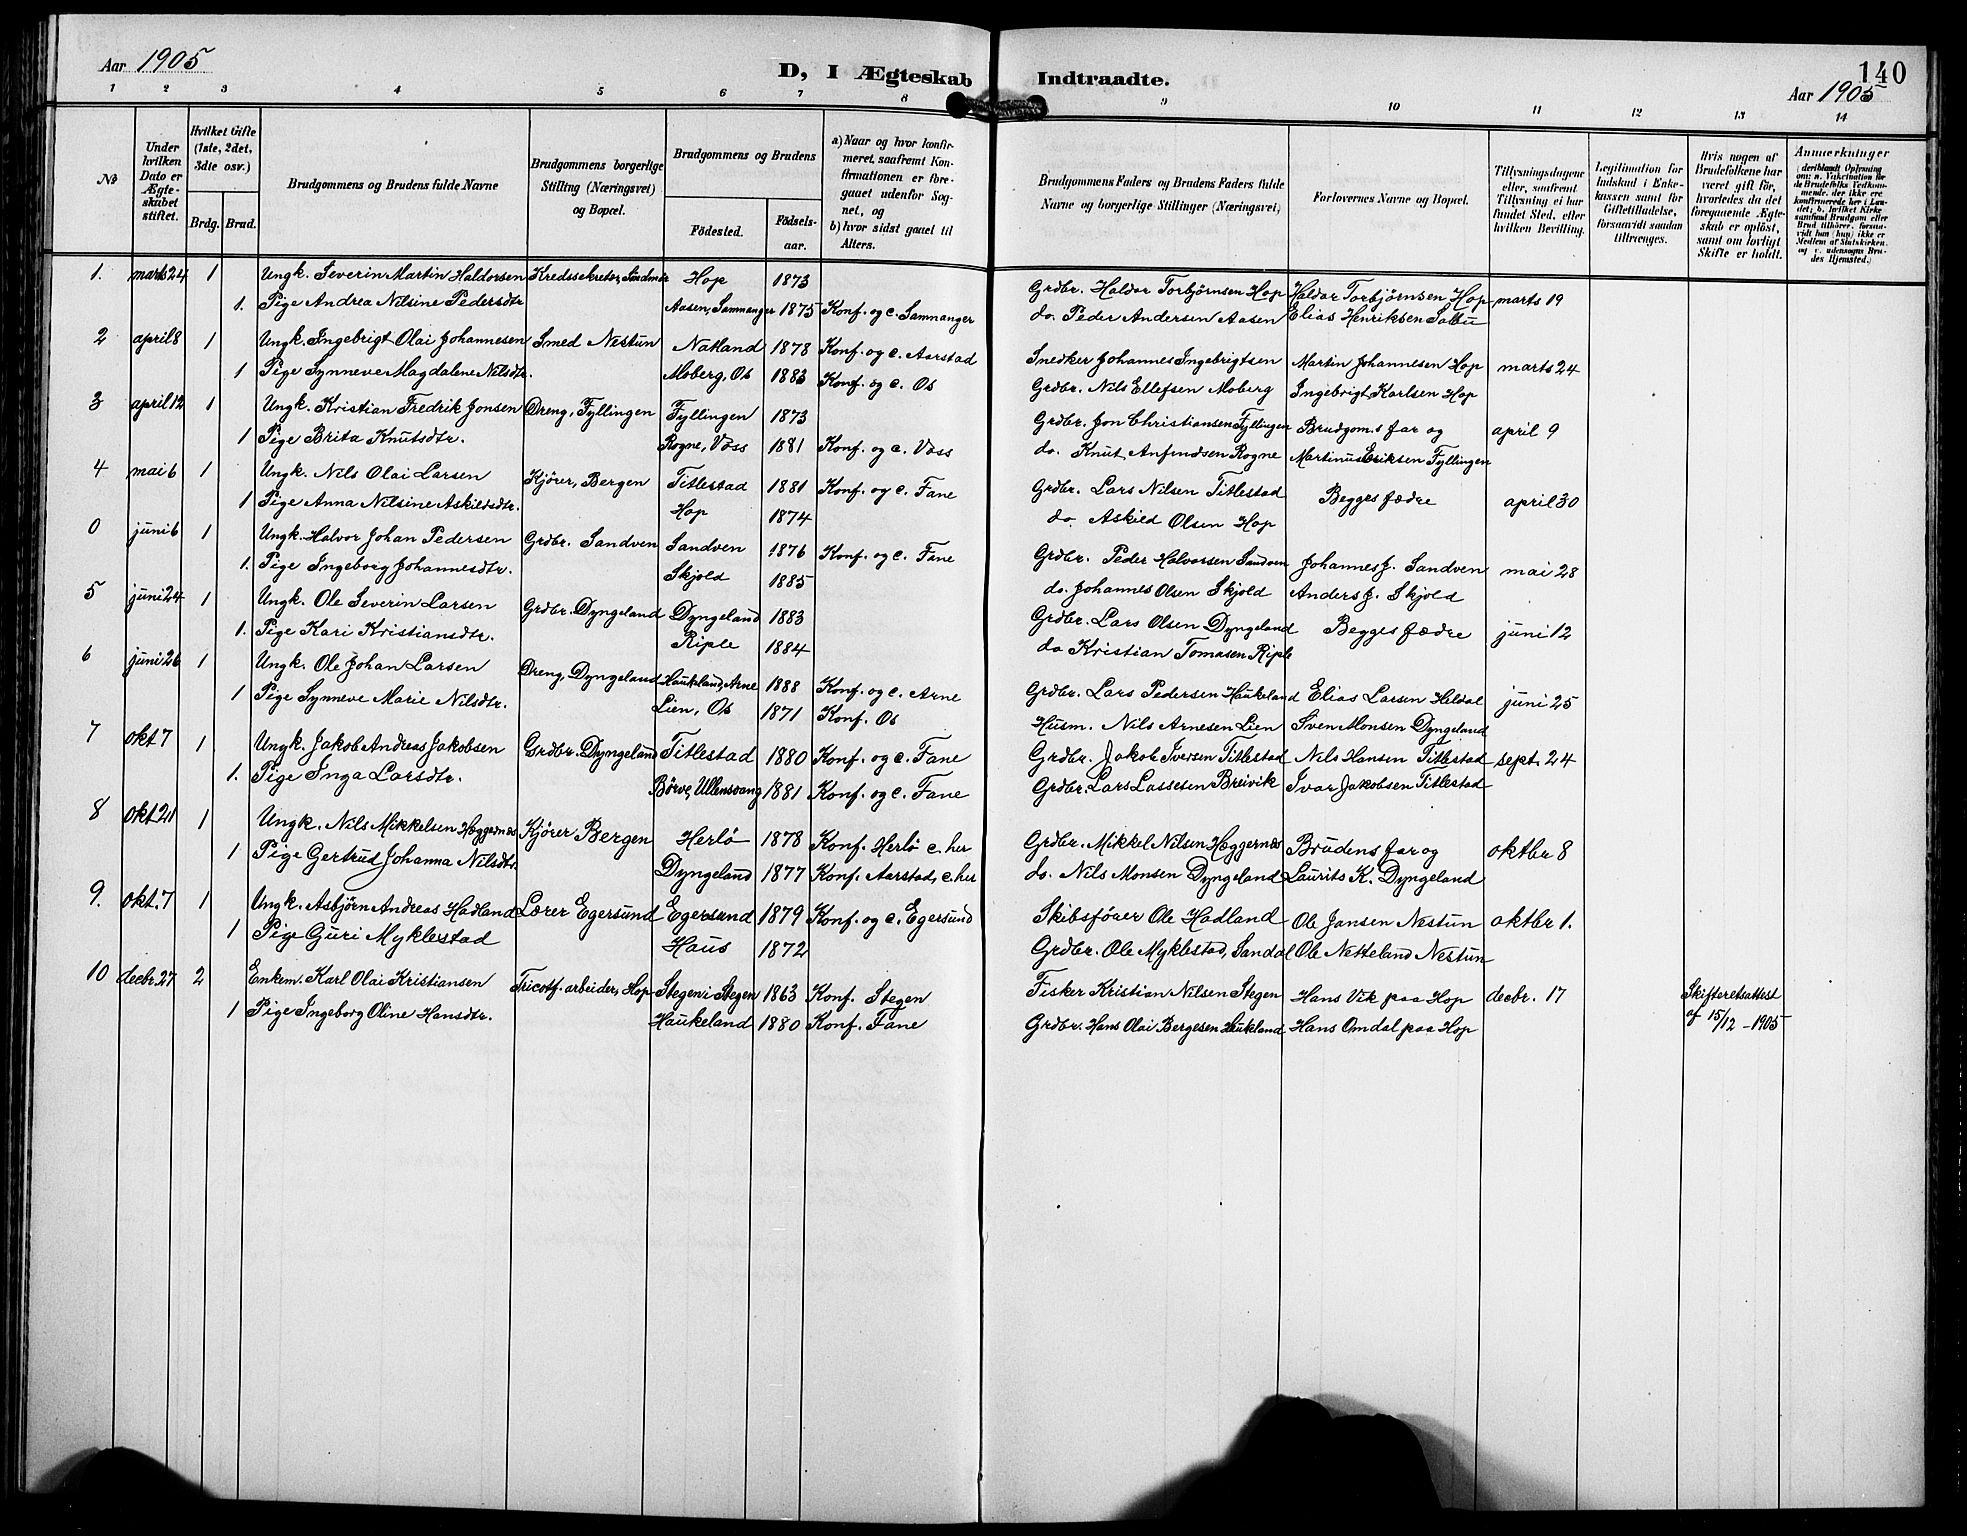 Aar 1905
D, I Ægteskab Indtraadte.
140
Aar 1905
1 2 3 4 5 6 7 8 9 10 11 12 13 14
No
Under hvilken Dato er Ægteskabet stiftet.
Hvilket Gifte (1ste, 2det, 3die osv.)
Brdg. Brud.
Brudgommens og Brudens fulde Navne
Brudgommens borgerlige Stilling (Næringsvei) og Bopæl.
Brudgommens og Brudens
Födested.
Födselsaar.
a) Naar og hvor konfirmeret, saafremt Konfirmationen er foregaaet udenfor Sognet, og
b) hvor sidst gaaet til Alters.
Brudgommens Faders og Brudens Faders fulde Navne og borgerlige Stillinger (Næringsvei)
Forlovernes Navne og Bopæl.
Tillysningsdagene eller, saafremt Tillysning ei har fundet Sted, efter hvilken Bevilling.
Legitimation for Indskud i Enkekassen samt for Giftetilladelse, forsaavidt saadan tiltrænges.
Hvis nogen af Brudefolkene har været gift för, hvorledes da det foregaaende Ægteskab er oplöst, samt om lovligt Skifte er holdt.
Anmerkninger
1. marts 24 1 Ungk. Severin Martin Haldorsen Kredssekretær, Söndmør Hop 1873 Grdbr. Haldor Torbjørnsen Hop Haldor Torbjørnsen Hop marts 19
1. Pige Andrea Nilsine Pedersdtr Aasen, Samnanger 1875 Konf. og c. Samnanger do. Peder Andersen Aasen Elias Henriksen Salbu
2 april 8 1 Ungk. Ingebrigt Olai Johannesen Smed Nestun Natland 1878 Konf. og c. Aarstad Snedker Johannes Ingebrigtsen Martin Johannesen Hop marts 24
1 Pige Synneve Magdalene Nilsdtr. Moberg, Os 1883 Konf. og c. Os Grdbr. Nils Ellefsen Moberg Ingebrigt Karlsen Hop
3 april 12 1 Ungk. Kristian Fredrik Jonsen Dreng, Fyllingen Fyllingen 1873 Grdbr. Jon Christiansen Fyllingen Brudgom.s far og april 9
1 Pige Brita Knutsdtr. Rogne, Voss 1881 Konf. og c. Voss do. Knut Anfindsen Rogne Martinus Eriksen Fyllingen
4 mai 6 1 Ungk. Nils Olai Larsen Kjører, Bergen Titlestad 1881 Konf. og c. Fane Grdbr. Lars Nilsen Titlestad Begges fædre april 30
1 Pige Anna Nilsine Askildsdtr. Hop 1874 do. Askild Olsen Hop
0 juni 6 1 Ungk. Halvor Johan Pedersen Grdbr. Sandven Sandven 1876 Konf. og c. Fane Grdbr. Peder Halvorsen Sandven Johannes J. Sandven mai 28
1. Pige Ingeborg Johannesdtr. Skjold 1885 do. Johannes Olsen Skjold Anders J. Skjold
5 juni 24 1 Ungk. Ole Severin Larsen Grdbr. Dyngeland Dyngeland 1883 Grdbr. Lars Olsen Dyngeland Begges fædre juni 12
1. Pige Kari Kristiansdtr. Riple 1884 do Kristian Tomasen Riple
6 juni 26 1 Ungk. Ole Johan Larsen Dreng, Dyngeland Haukeland, Arne 1888 Konf. og c. Arne Grdbr. Lars Pedersen Haukeland Elias Larsen Heldal juni 25
1 Pige Synneve Marie Nilsdtr. Lien, Os 1871 Konf. Os Husm. Nils Arnesen Lien Sven Monsen Dyngeland
7 okt 7 1 Ungk. Jakob Andreas Jakobsen Grdbr. Dyngeland Titlestad 1880 Konf. og c. Fane Grdbr. Jakob Iversen Titlestad Nils Hansen Titlestad sept. 24
1. Pige Inga Larsdtr. Børve, Ullensvang 1881 Konf. og c. Fane Grdbr. Lars Lassesen Breivik Ivar Jakobsen Titlestad
8 okt 21 1 Ungk. Nils Mikkelsen Heggernes Kjörer Bergen Herlö 1878 Konf. Herlö c. her Grdbr. Mikkel Nilsen Heggernes Brudens far og oktbr 8
1 Pige Gertrud Johanna Nilsdtr. Dyngeland 1877 Konf. Aarstad, c. her do. Nils Monsen Dyngeland Laurits K. Dyngeland
9. okt. 7 1 Ungk. Asbjørn Andreas Hadland Lærer Egersund Egersund 1879 Konf. og c. Egersund Skibsförer Ole Hadland Ole Jansen Nestun oktbr 1.
1 Pige Guri Myklestad Haus 1872 Grdbr. Ole Myklestad, Sandal Ole Netteland Nestun
10 decbr. 27 2 Enkem. Karl Olai Kristiansen Tricotf. arbeider, Hop Stegen i Stegen 1863 Konf. Stegen Fisker Kristian Nilsen Stegen Hans Vik paa Hop decbr. 17 Skifteretsattest
1 Pige Ingeborg Oline Hansdtr. Haukeland 1880 Konf. Fane Grdbr. Hans Olai Bergesen Haukeland Hans Omdal paa Hop af 15/12 - 1905